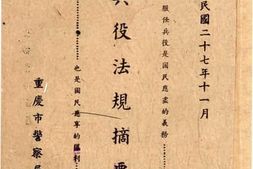 民國二十七年十一月
服任兵役是國民應盡的義務
兵役法規摘要
也是國民應享的權利
重慶市警察局